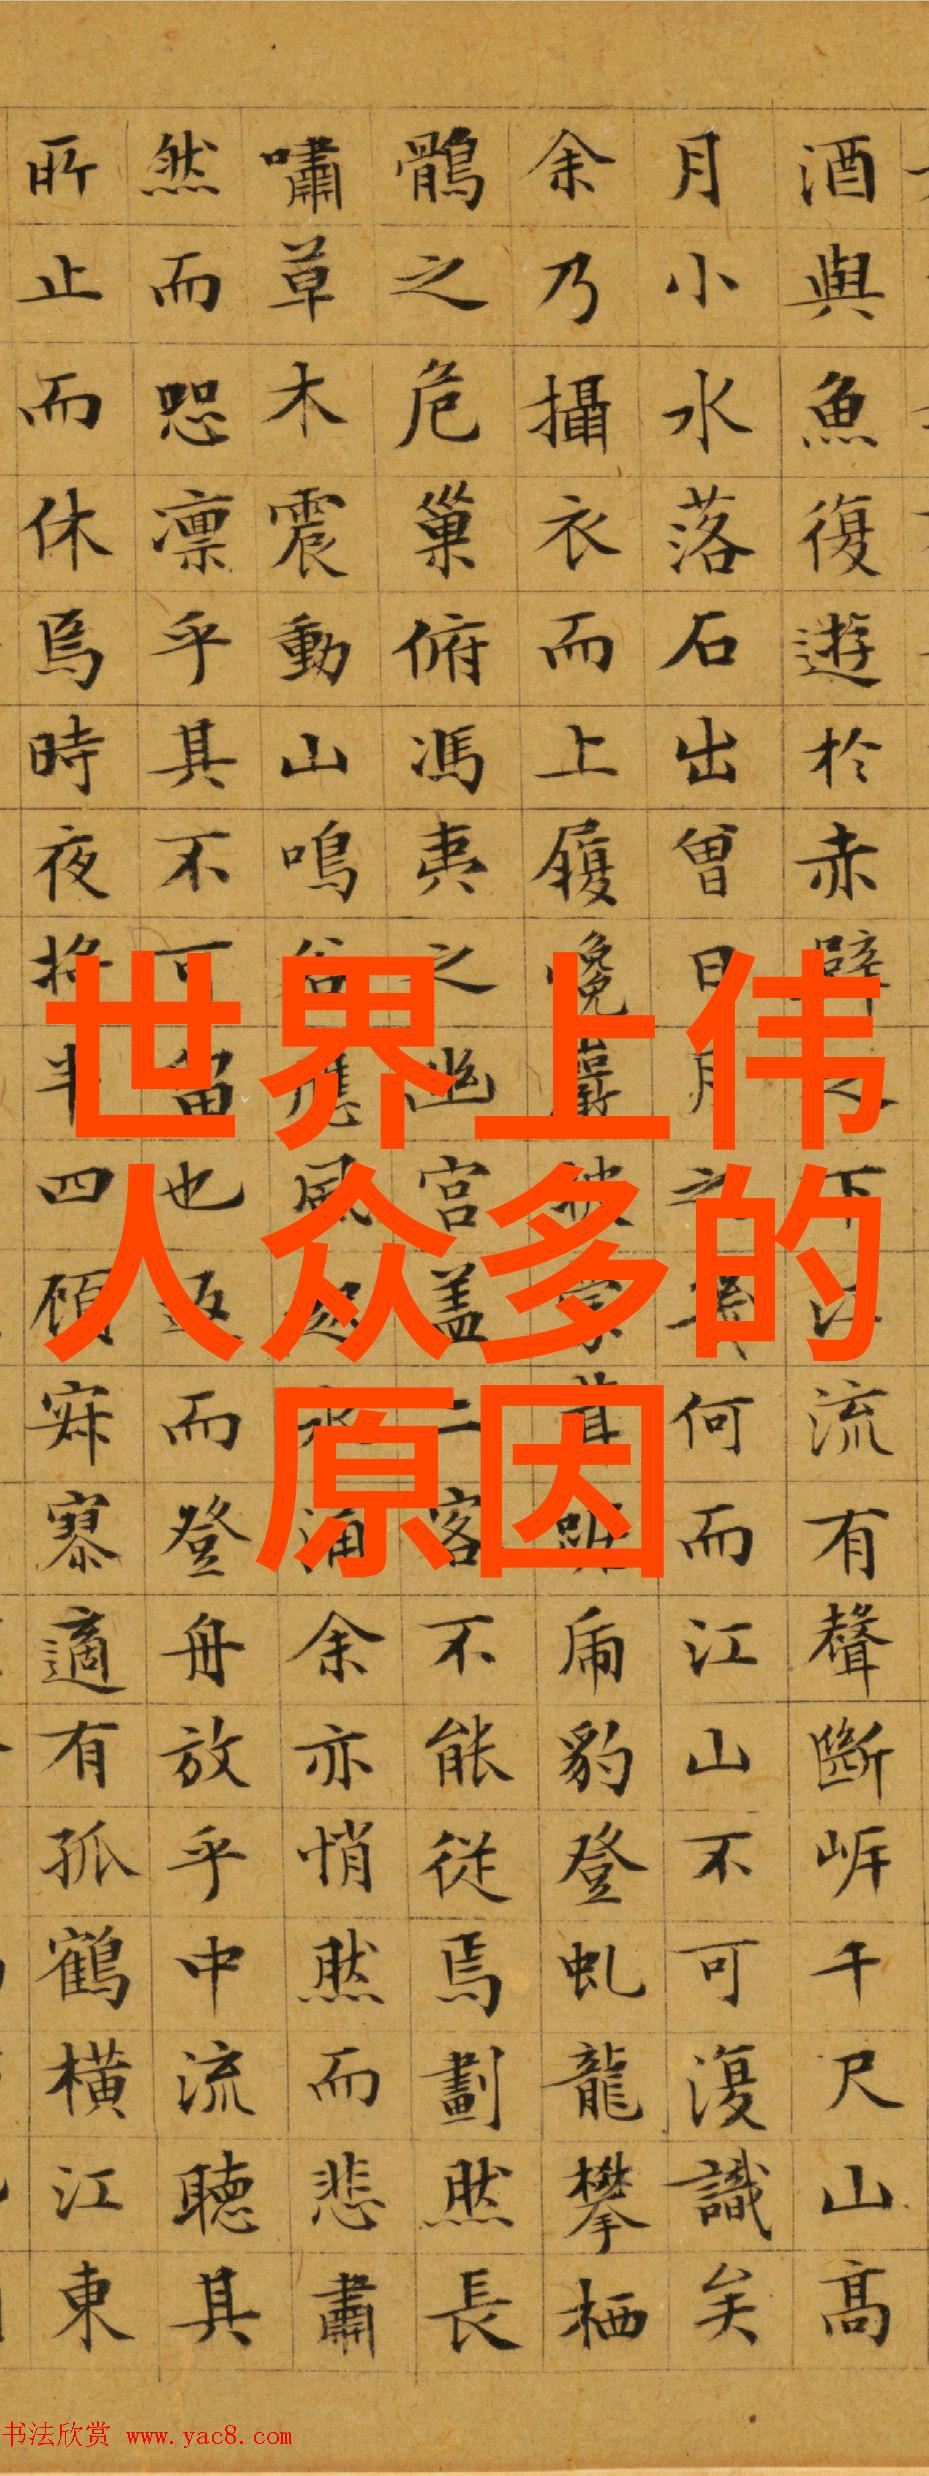 酒與魚復遊於赤壁之下江流有聲斷岸千尺山髙
月小水落石出曾日月之幾何而江山不可復識矣
余乃攝衣而上履巉巖披蒙茸踞虎豹登虬龍攀栖
鶻之危巢俯馮夷之幽宮蓋二客不能從焉劃然長
嘯草木震動山鳴谷應風起水涌余亦悄然而悲肅
然而恐凛乎其不可留也返而登舟放乎中流聽其
所止而休焉時夜將半四顧寂寥適有孤鶴橫江東
世界上伟
人众多的
原因
书法欣赏 www.yac8.com